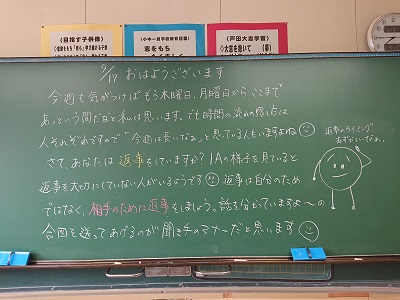 〈目指す子供像〉
〈小中一貫学習教育目標〉
志をもち
〈戸田大志学習〉
9/17 おはようございます
今週も気がつけばもう木曜日。月曜日からここまで
あっという間だなと私は思います。でも時間の流れの感じ方は
人それぞれですので「今週は長いなぁ」と思っている人もいますよね
さて、あなたは返事をしていますか？1Aの様子を見ていると
返事を大切にしていない人がいるようです 返事は自分のため
ではなく、相手のために返事をしましょう。話を分かっていますよ〜の
合図を送ってあげるのが聞き手のマナーだと思います
返事のタイミング